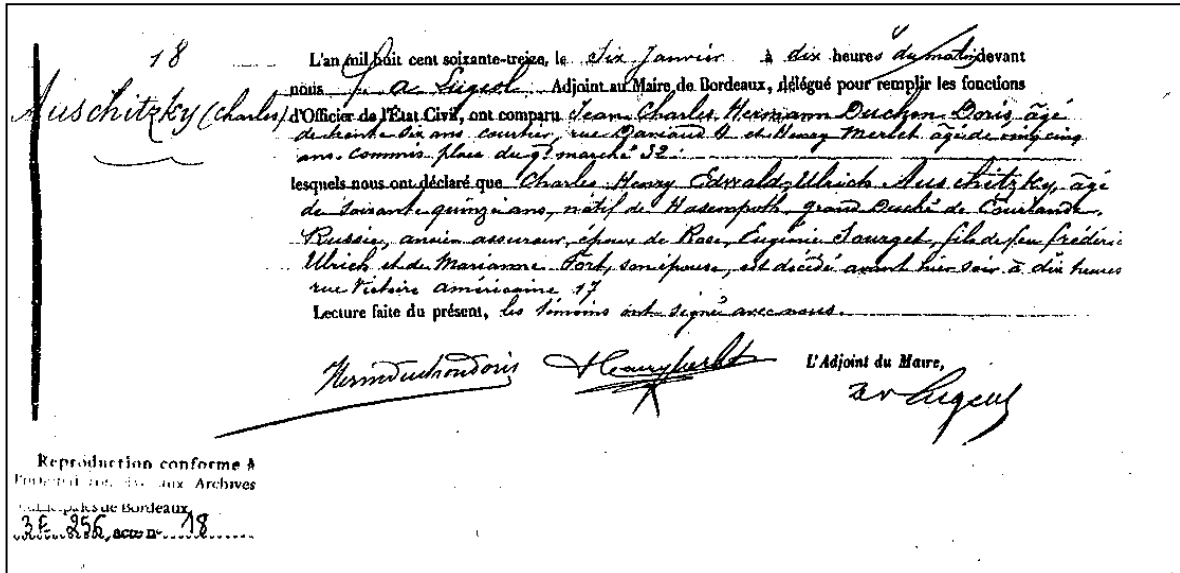 18
Auschitzky (Charles)
L'an mil huit cent soixante-treize, le Six Janvier à dix heures du matin devant
nous Lugeol Adjoint au Maire de Bordeaux, délégué pour remplir les fonctions
d'Officier de l'État Civil, ont comparu Jean Charles Hermann Duchon Doris, âgé
de trente six ans courtier, rue et Henry Merlet âgé de vingt cinq
ans. Commis place du gd marché 32.
lesquels nous ont déclaré que Charles Henry Edwald-Ulrich Auschitzky, âgé
de soixante quinze ans, natif de Hasempoth, grand Duché de Courlande,
Russie, ancien assureur, époux de Rose, Eugénie Sourget, fils de feu frédéric
Ulrich et de Marianne Tort, son épouse, est décédé avant hier soir à dix heures
rue Victoire américaine 17
Lecture faite du présent, les témoins ont signé avec nous.
HermDuchonDoris
L'Adjoint du Maire,
Lugeol
Reproduction conforme à
aux Archives
de Bordeaux
3E 256, acte n° 18